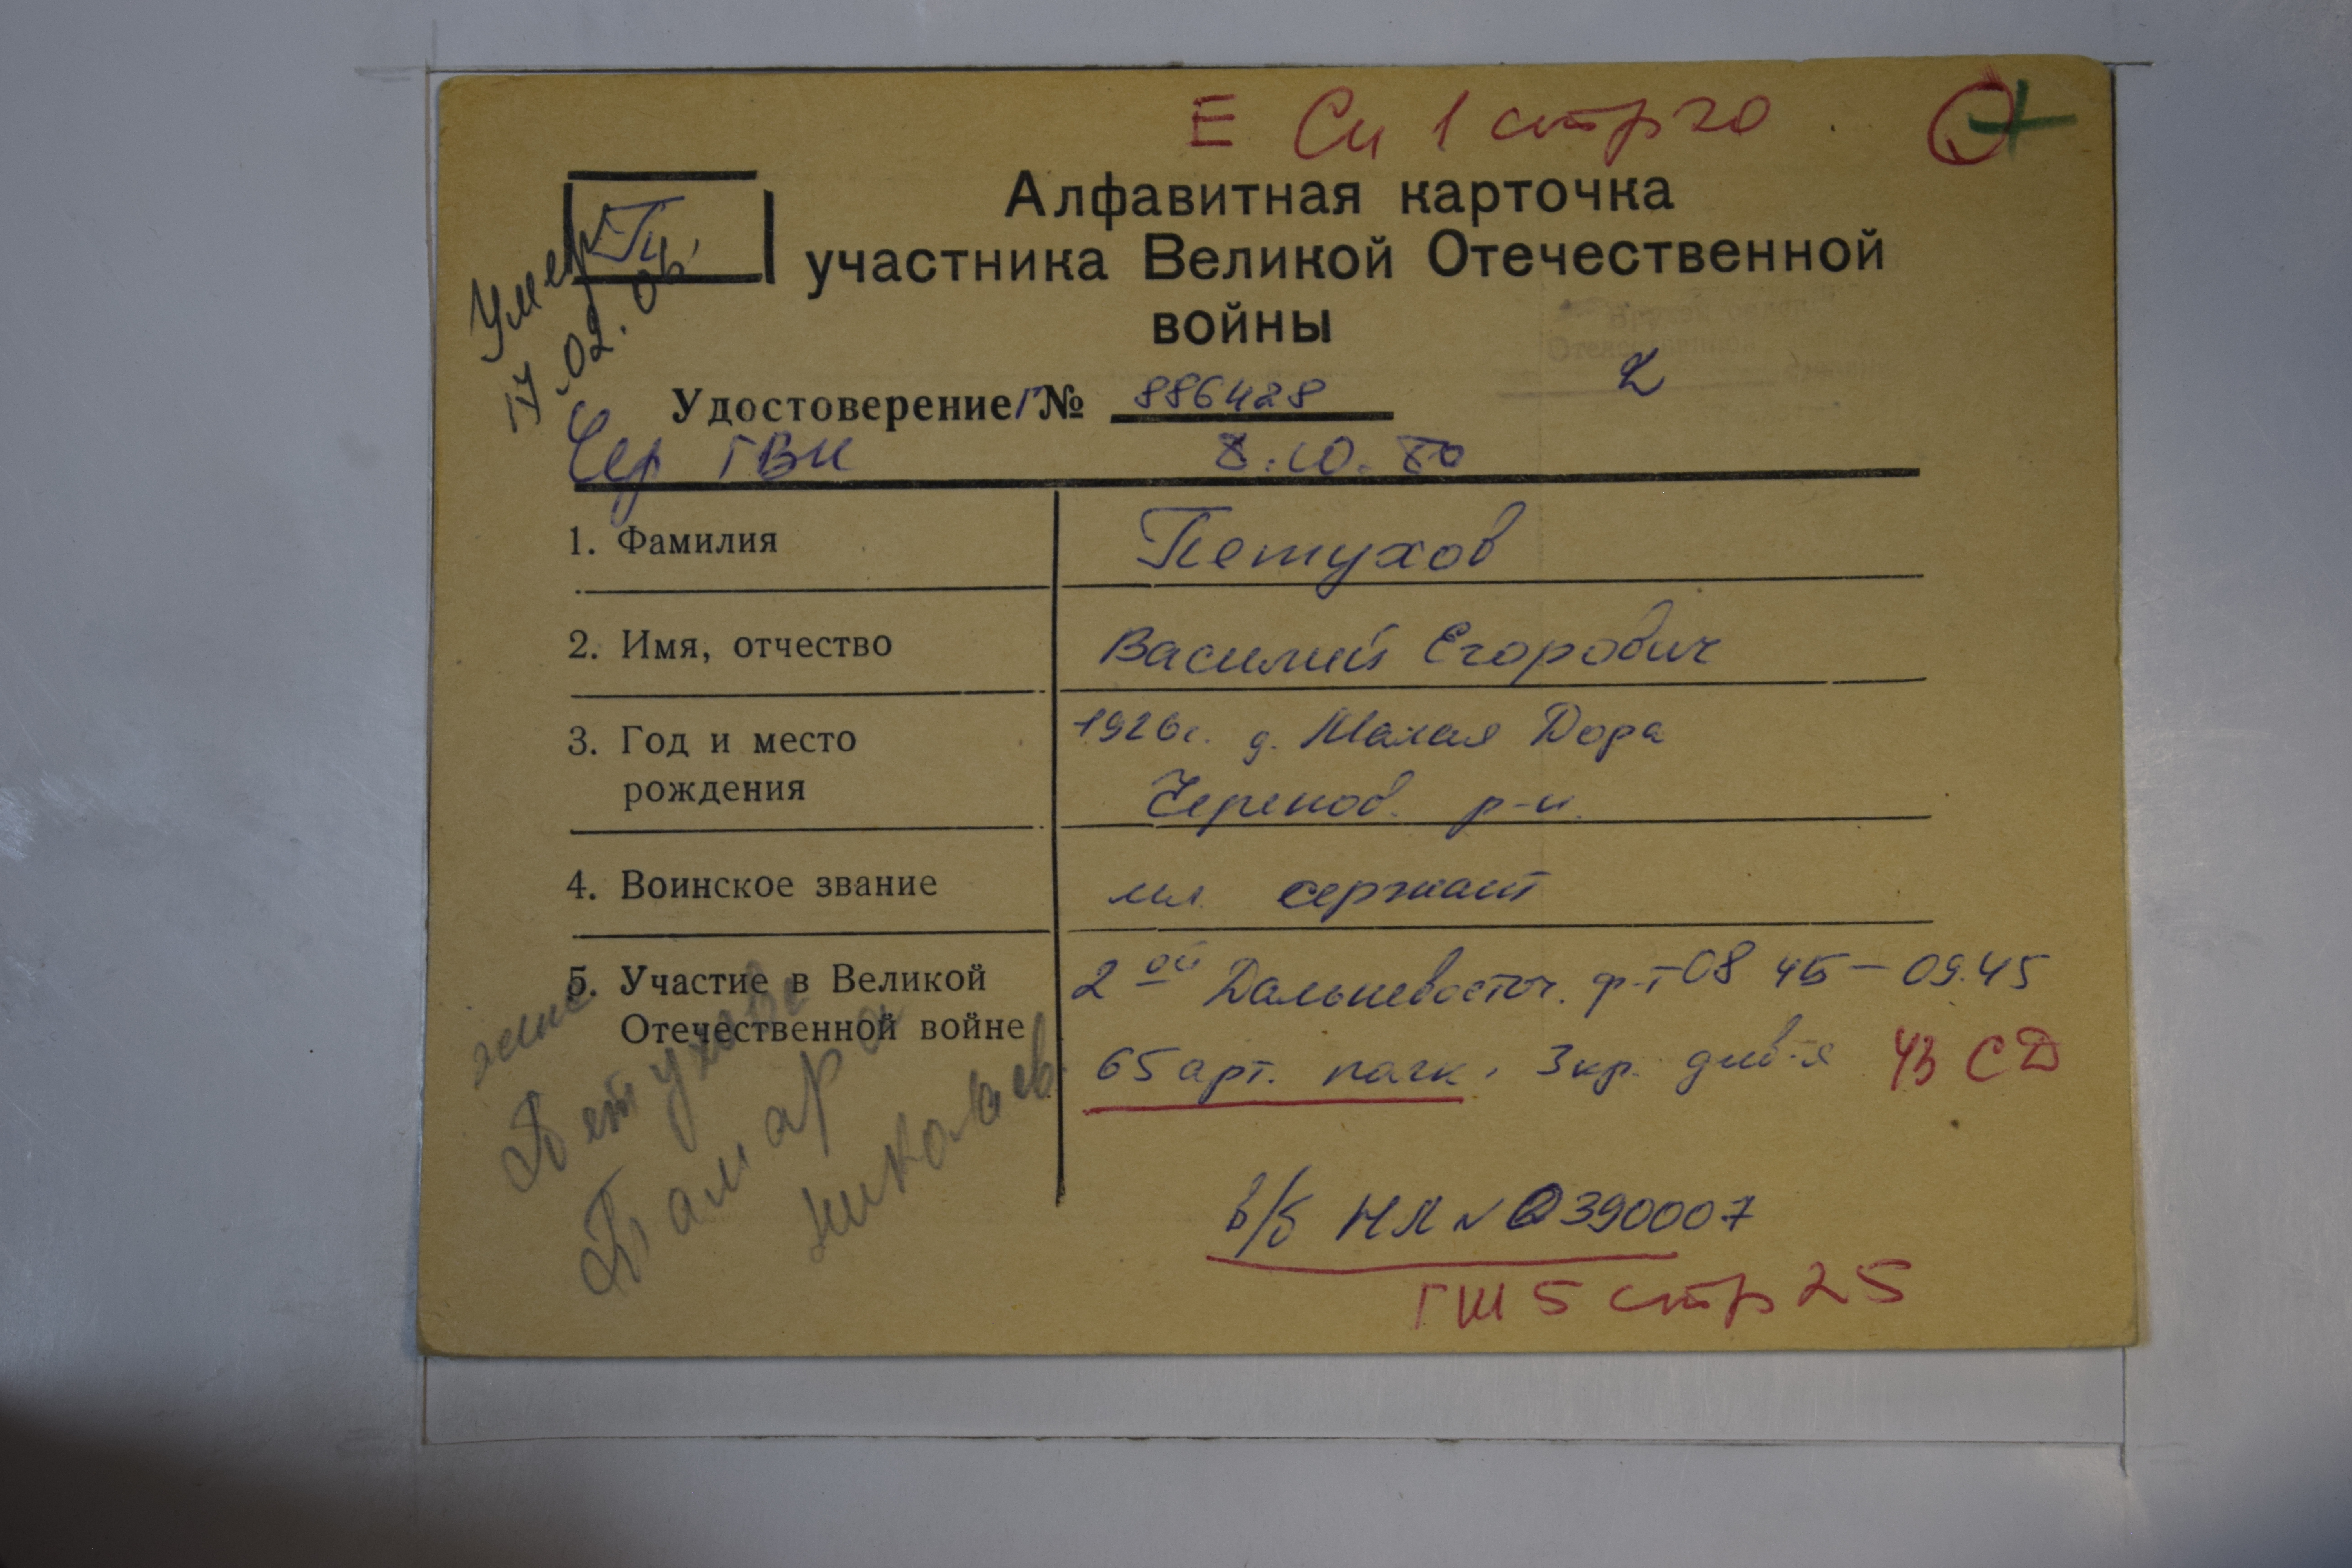 Е Си 1 стр 20
Алфавитная карточка
участника Великой Отечественной
войны
Умер
17.02.06.
Удостоверение Г № 886428
2
Чер ГВК 8.10.80
1. Фамилия
Петухов
2. Имя, отчество
Василий Егорович
3. Год и место
рождения
1926г. д. Малая Дора
Черепов. р-н.
4. Воинское звание
мл. сержант
5. Участие в Великой
Отечественной войне
2 ой Дальневосточ. ф-т 08 45 – 09.45
65 арт. полк, 3 кр. див-я ЧЗ СД
жена
Петухова
Тамара
Николаев.
в/б НЛ № 0390007
ГШ 5 стр 25